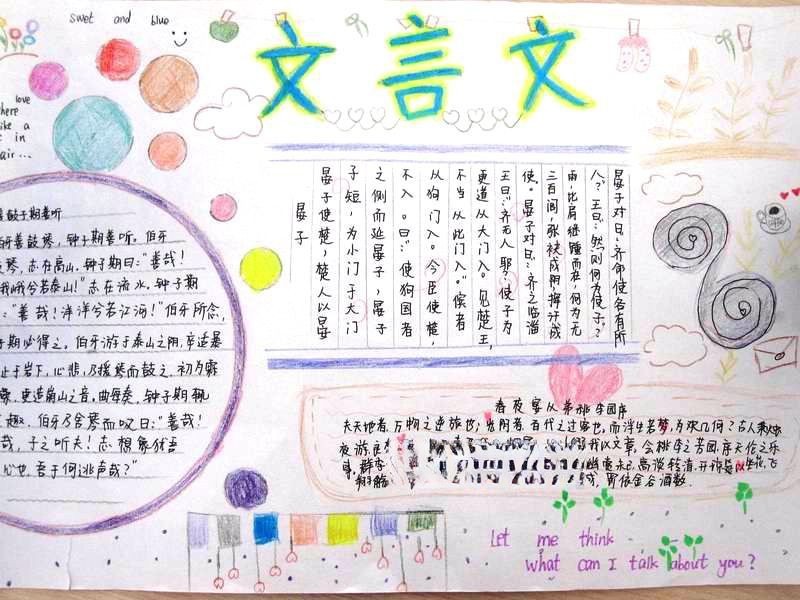 swet and blue
文言文
love
here
like a
in
air...
鼓子期善听
伯牙善鼓琴，钟子期善听。伯牙
琴，志在高山，钟子期曰：“善哉！
峨峨兮若泰山！”志在流水，钟子期
：“善哉！洋洋兮若江河！”伯牙所念，
子期必得之。伯牙游于泰山之阴，卒逢暴
止于岩下，心悲，乃援琴而鼓之。初为霖
更造崩山之音，曲每奏，钟子期辄
趣。伯牙乃舍琴而叹曰：“善哉！
哉，子之听夫！志想象犹吾
心也。吾于何逃声哉？”
晏子
晏子使楚，楚人以晏
子短，为小门于大门
之侧而延晏子，晏子
不入。曰：“使狗国者
从狗门入。今臣使楚，
不当从此门入。”傧者
更道从大门入。见楚王，
王曰：“齐无人耶，使子为
使。晏子对曰：齐之临淄
三百闾，张袂成阴，挥汗成
雨，比肩继踵而在，何为无
人？”王曰：“然则何为使子？”
晏子对曰：齐命使各有所
春夜宴从弟桃李园序
夫天地者，万物之逆旅也；光阴者，百代之过客也，而浮生若梦，为欢几何？古人秉烛
夜游，良 我以文章，会桃李之芳园，序天伦之乐
事，群季 幽赏未已，高谈转清，开琼筵以坐花，飞
羽觞 成，罚依金谷酒数
Let me think
what can I talk about you?